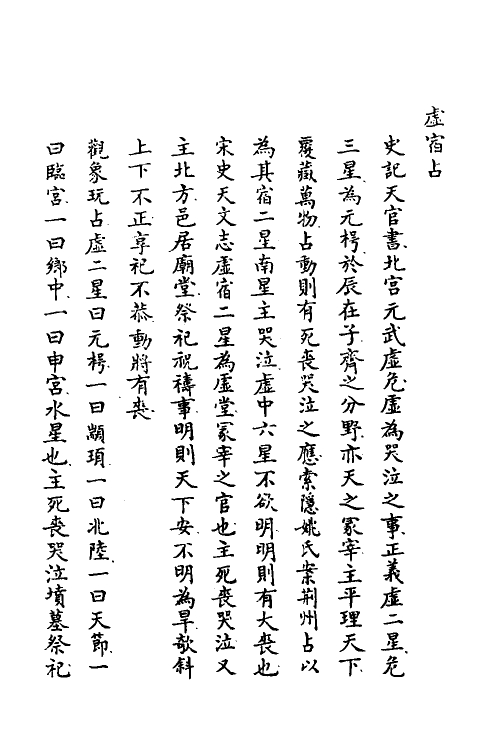 虛宿占
史記天官書北宮元武虛危虛為哭泣之事正義虛二星危
三星為元枵於辰在子齊之分野亦天之冢宰主平理天下
覆藏萬物占動則有死喪哭泣之應索隱姚氏案荆州占以
為其宿二星南星主哭泣虛中六星不欲明明則有大喪也
宋史天文志虛宿二星為虛堂冢宰之官也主死喪哭泣又
主北方邑居廟堂祭祀祝禱事明則天下安不明為旱欹斜
上下不正享祀不恭動將有喪
觀象玩占虛二星曰元枵一曰顓頊一曰北陸一曰天節一
曰臨宮一曰鄉中一曰申宮水星也主死喪哭泣墳墓祭祀